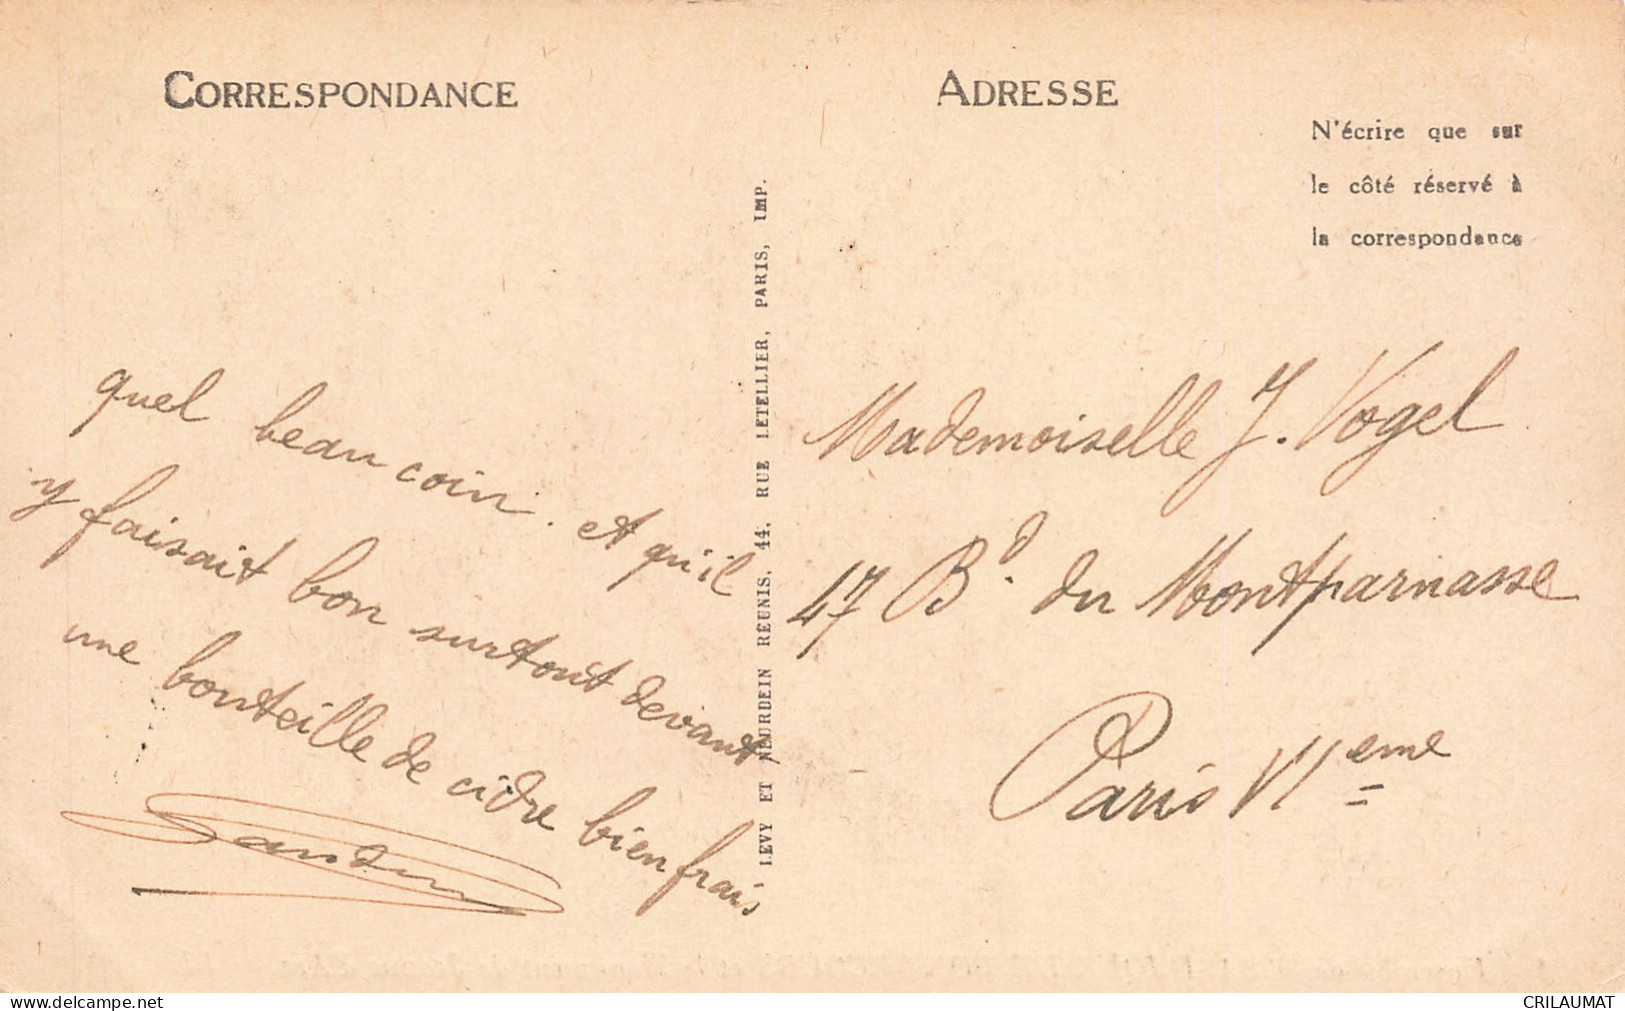 CORRESPONDANCE
ADRESSE
N'écrire que sur
le côté réservé à
la correspondance
quel beau coin. et qu'il
y faisait bon surtout devant
une bouteille de cidre bien frais
LEVY ET NEURDEIN REUNIS, 44, RUE LETELLIER, PARIS, IMP.
Mademoiselle J. Vogel
47 Bd. du Montparnasse
Paris VIeme
www.delcampe.net
CRILAUMAT